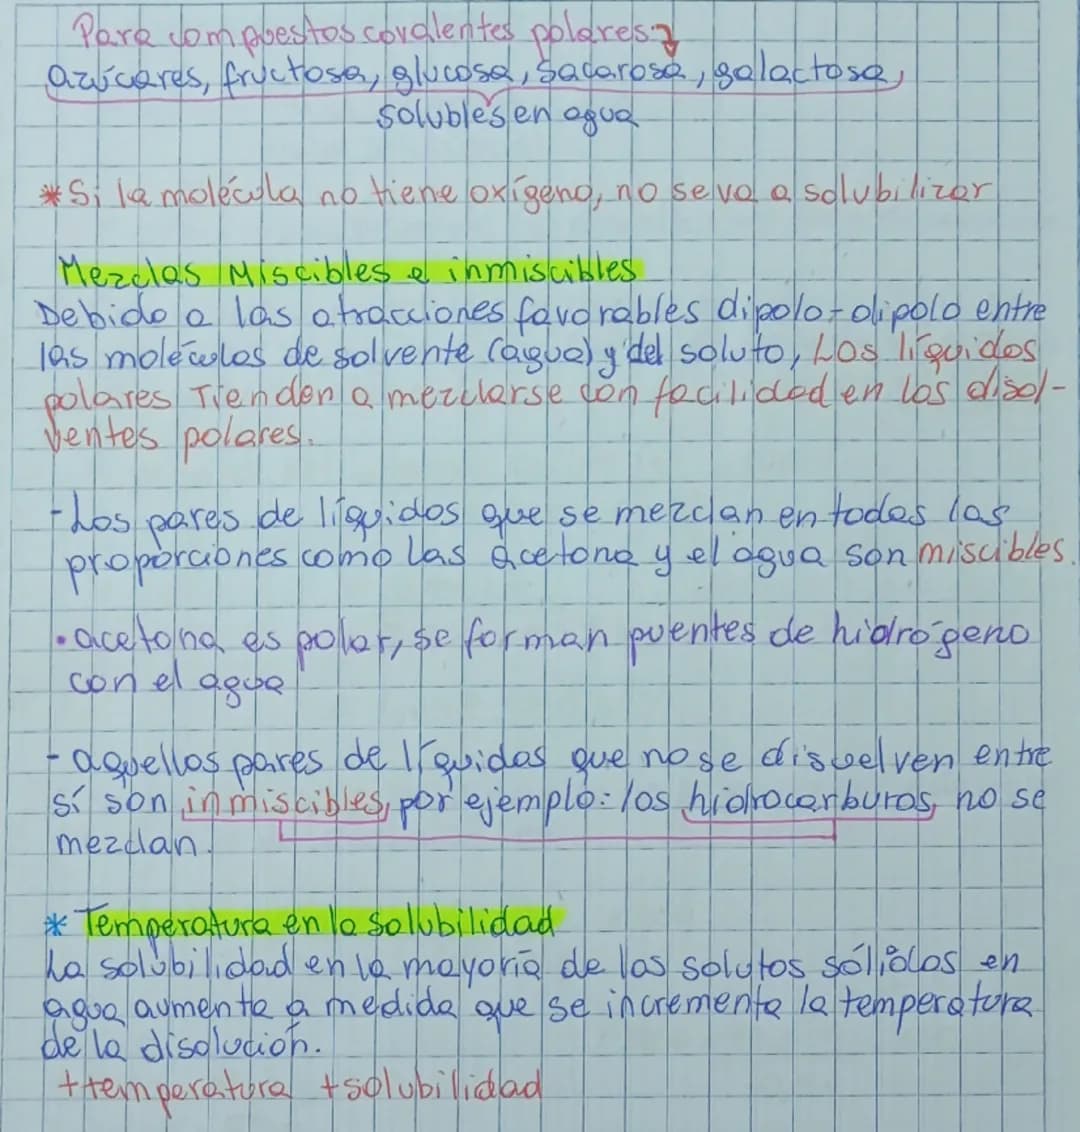 Para compuestos covalentes polares:
azúcares, fructosa, glucosa, sacarosa, galactosa,
solubles en agua
*Si la molécula no tiene oxígeno, no se va a solubilizar
Mezclas Miscibles e inmiscibles
Debido a las atracciones favorables dipolo-dipolo entre
las moléculas de solvente (agua) y del soluto, Los líquidos
polares Tienden a mezclarse con facilidad en los disol-
ventes polares.
-Los pares de líquidos que se mezclan en todas las
proporciones como las acetona y el agua son miscibles.
•acetona es polar, se forman puentes de hidrógeno
con el agua
-aquellos pares de líquidos que no se disuelven entre
sí son inmiscibles, por ejemplo: los hidrocarburos, no se
mezclan.
* Temperatura en la solubilidad
La solubilidad en la mayoría de los solutos sólidos en
agua aumenta a medida que se incrementa la temperatura
de la disolución.
+temperatura +solubilidad